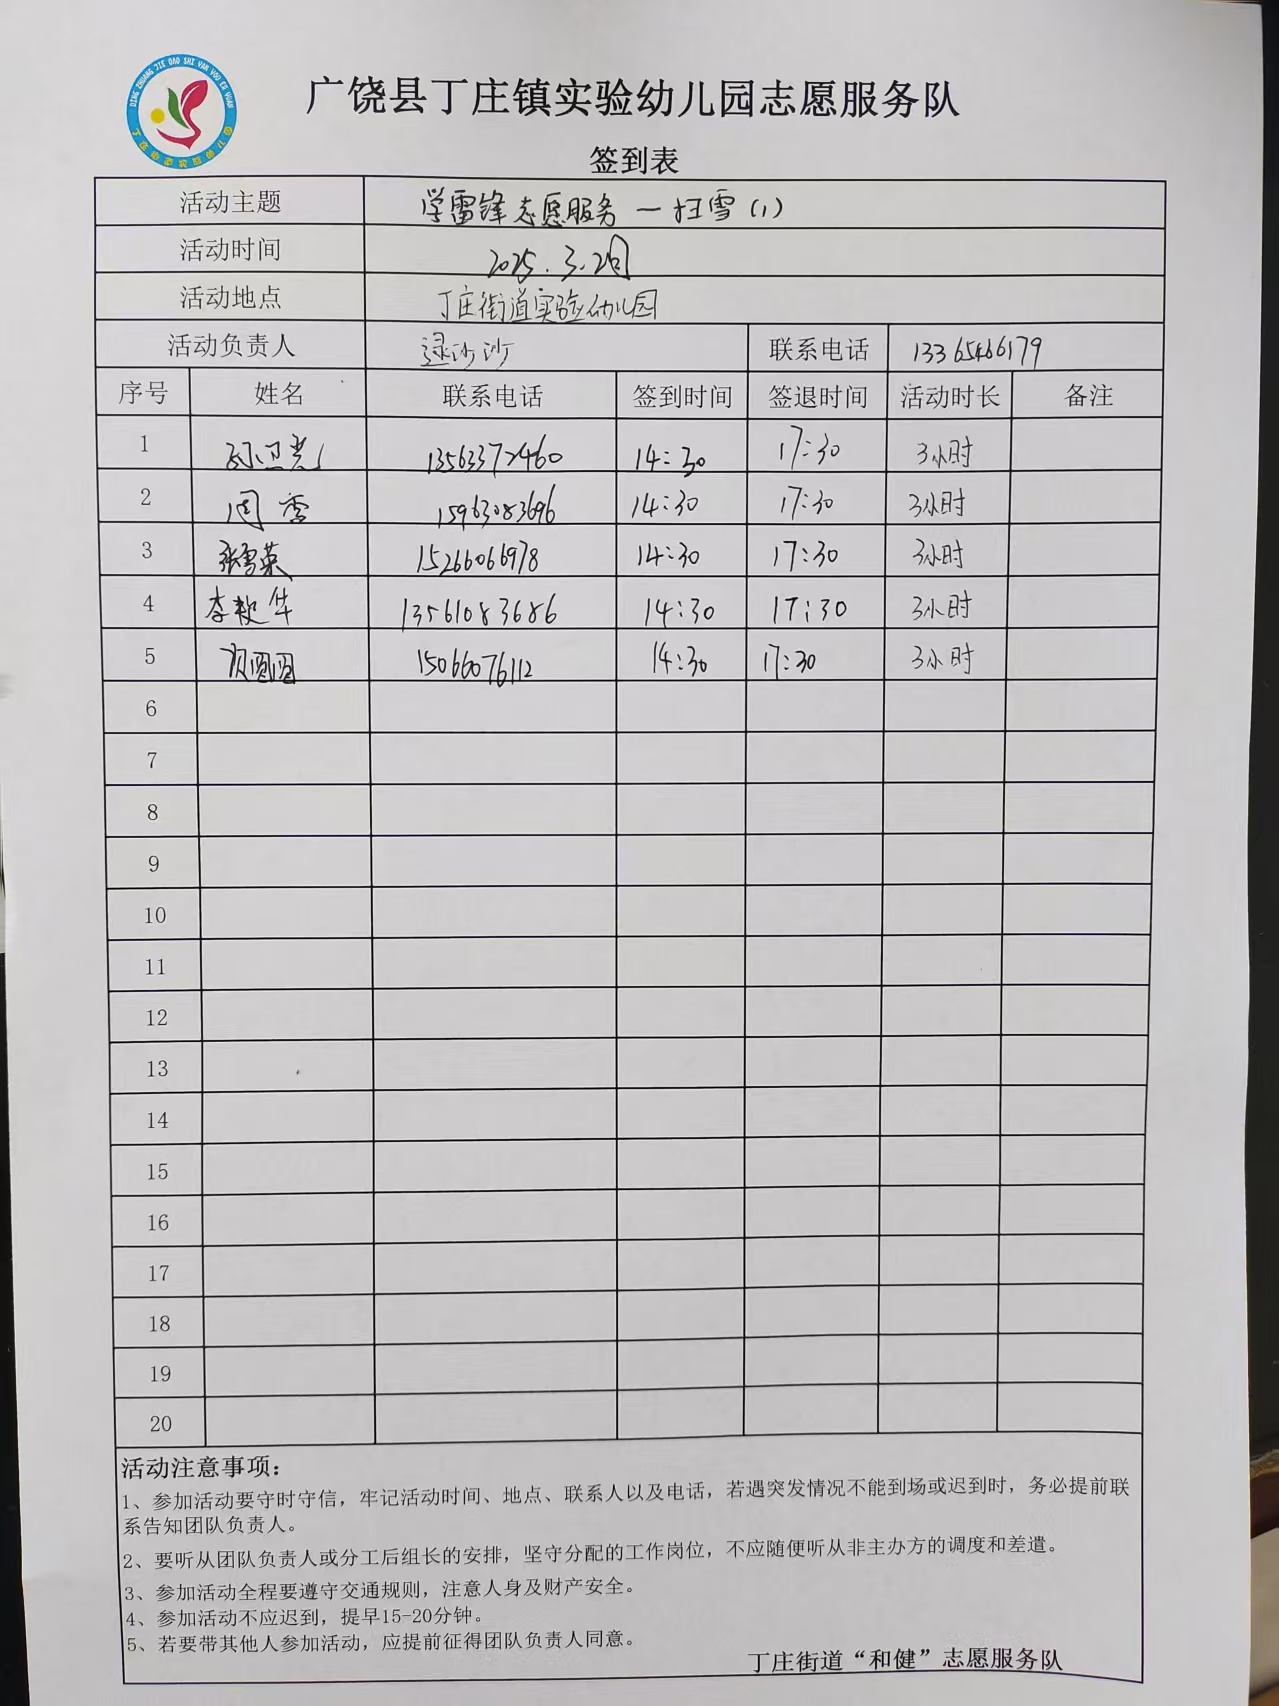 广饶县丁庄镇实验幼儿园志愿服务队
签到表
活动主题 学雷锋志愿服务一扫雪(1)
活动时间 2025.3.2日
活动地点 丁庄街道实验幼儿园
活动负责人 逯沙沙 联系电话 13365466179
序号 姓名 联系电话 签到时间 签退时间 活动时长 备注
1 孙卫光 13563372460 14:30 17:30 3小时
2 周香 15963083696 14:30 17:30 3小时
3 张雪英 15266066978 14:30 17:30 3小时
4 李艳华 13561083686 14:30 17:30 3小时
5 圆圆 15066076112 14:30 17:30 3小时
6
7
8
9
10
11
12
13
14
15
16
17
18
19
20
活动注意事项：
1、参加活动要守时守信，牢记活动时间、地点、联系人以及电话，若遇突发情况不能到场或迟到时，务必提前联
系告知团队负责人。
2、要听从团队负责人或分工后组长的安排，坚守分配的工作岗位，不应随便听从非主办方的调度和差遣。
3、参加活动全程要遵守交通规则，注意人身及财产安全。
4、参加活动不应迟到，提早15-20分钟。
5、若要带其他人参加活动，应提前征得团队负责人同意。
丁庄街道“和健”志愿服务队